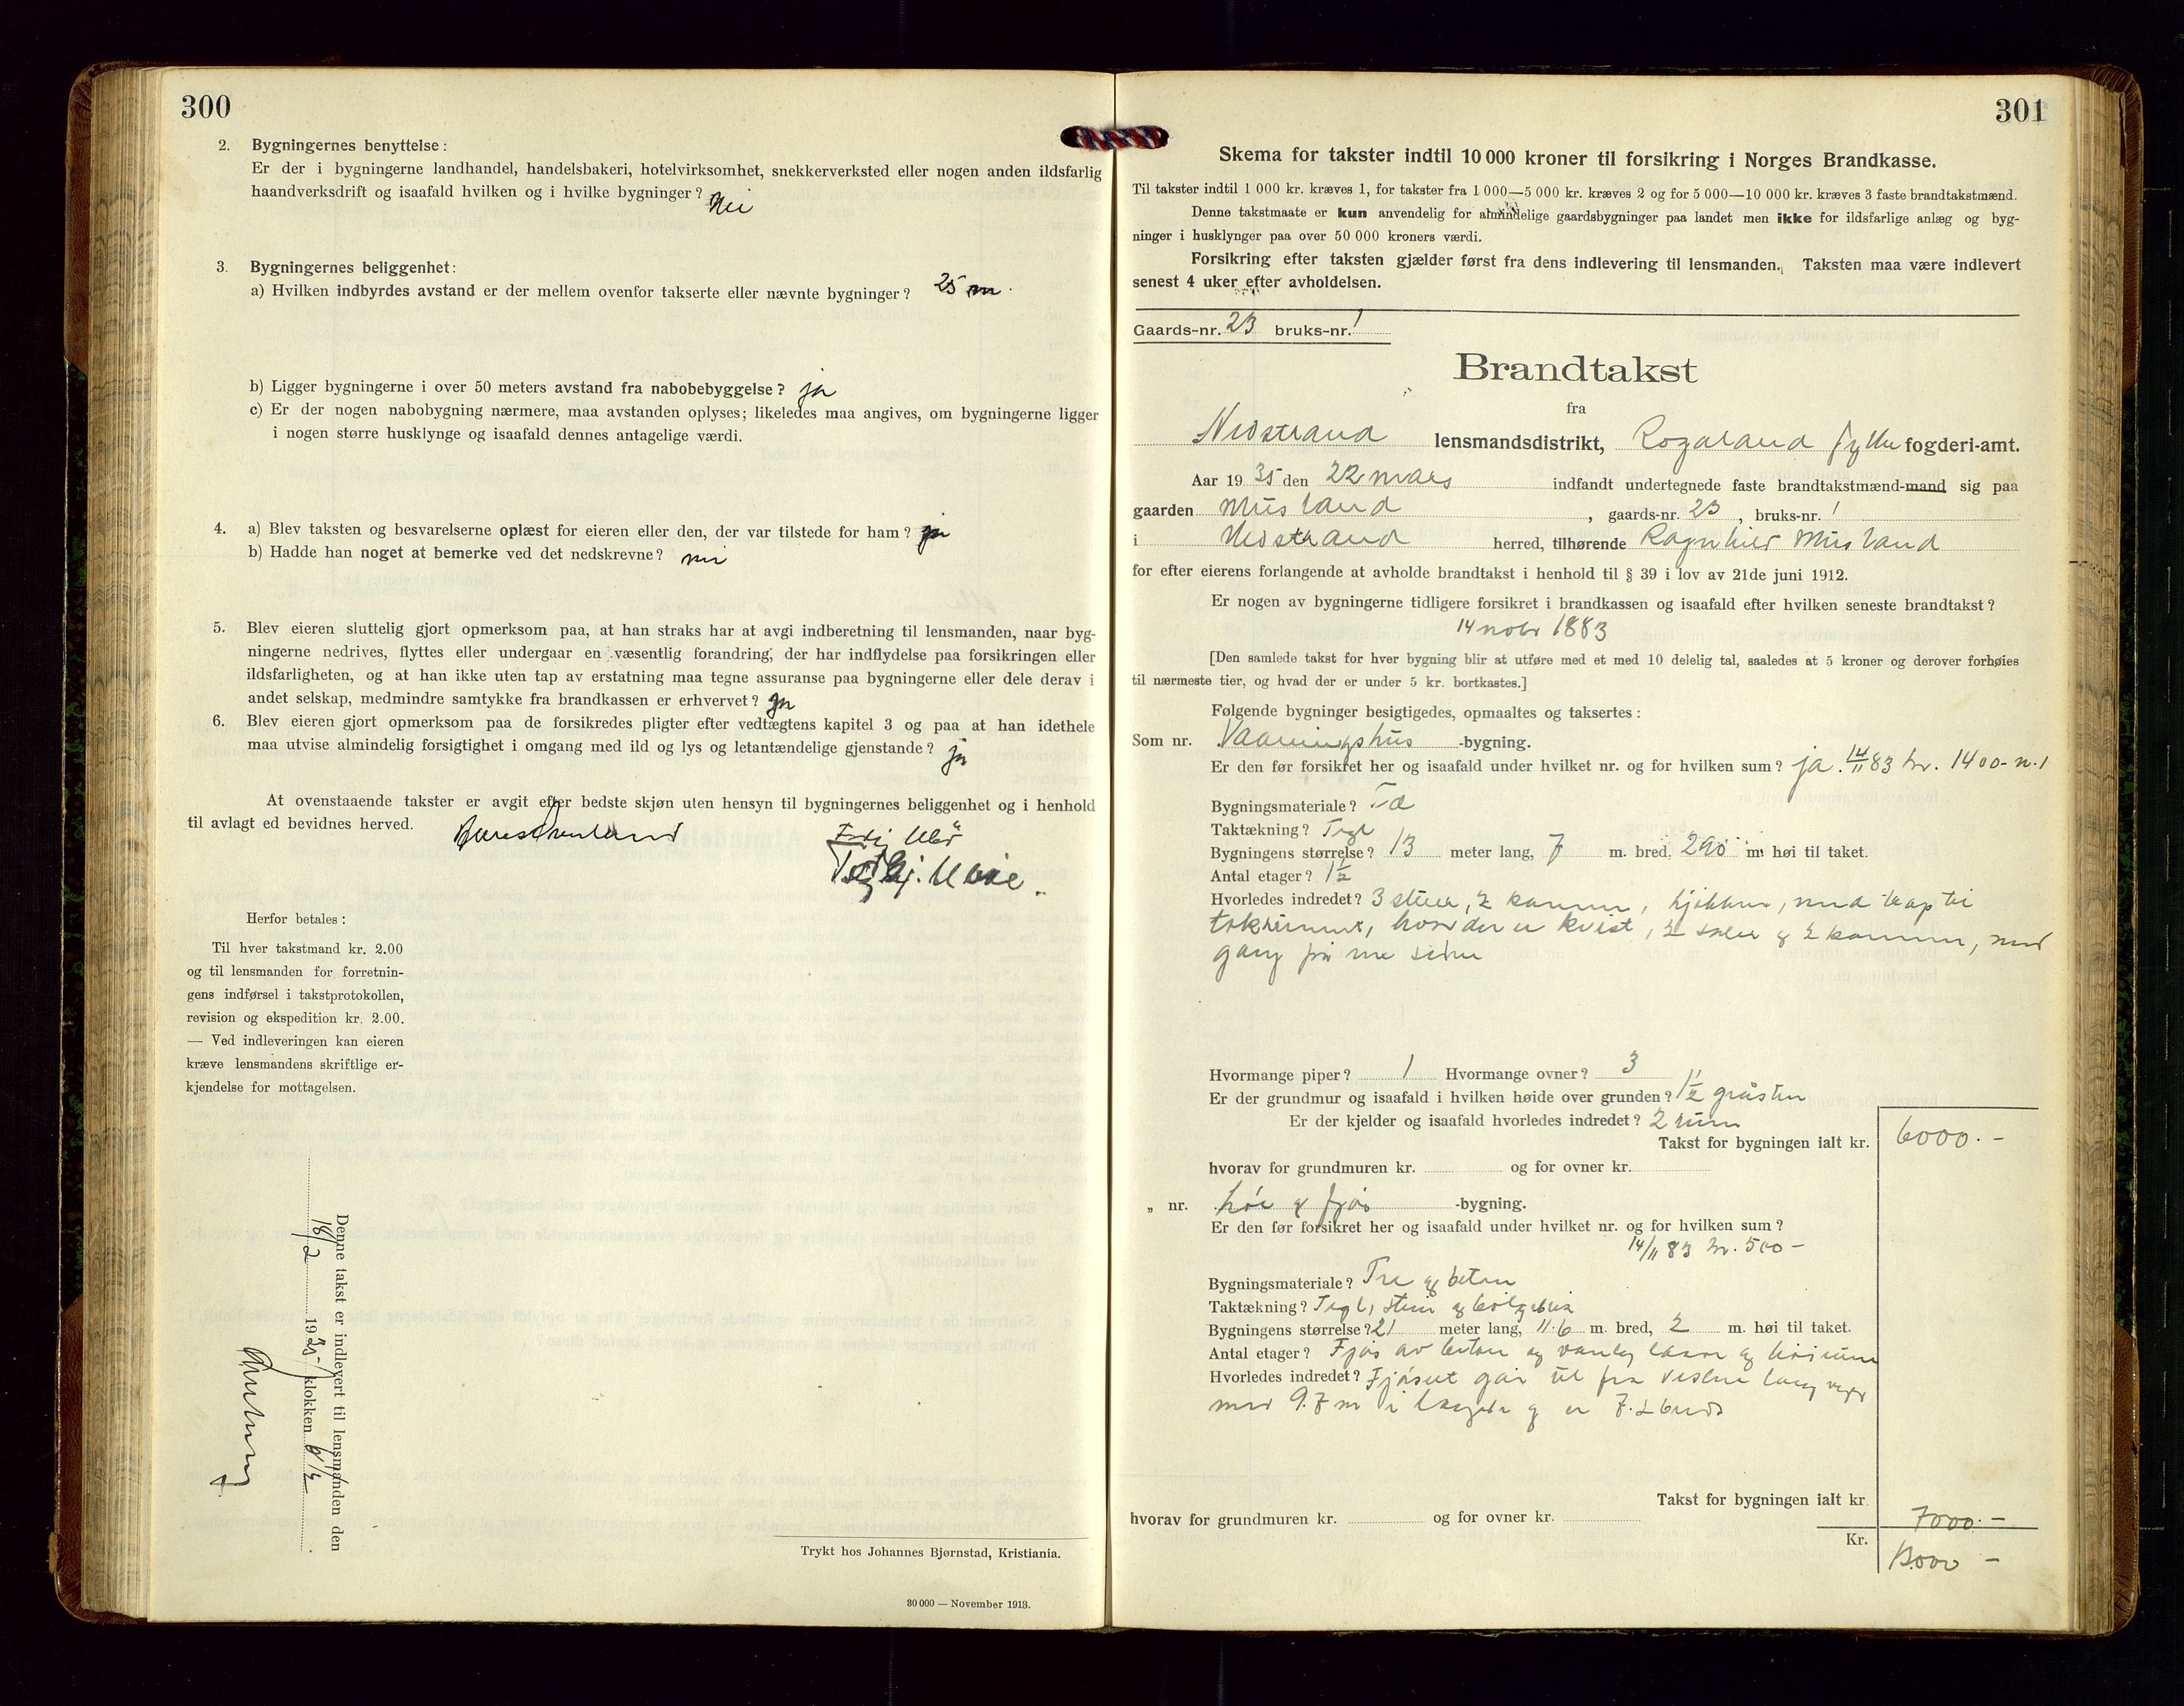 300
2. Bygningernes benyttelse:
Er der i bygningerne landhandel, handelsbakeri, hotelvirksomhet, snekkerverksted eller nogen anden ildsfarlig
haandverksdrift og isaafald hvilken og i hvilke bygninger? Nei
3. Bygningernes beliggenhet:
a) Hvilken indbyrdes avstand er der mellem ovenfor takserte eller nævnte bygninger? 25 m.
b) Ligger bygningerne i over 50 meters avstand fra nabobebyggelse? ja
c) Er der nogen nabobygning nærmere, maa avstanden oplyses; likeledes maa angives, om bygningerne ligger
i nogen større husklynge og isaafald dennes antagelige værdi.
4. a) Blev taksten og besvarelserne oplæst for eieren eller den, der var tilstede for ham? ja
b) Hadde han noget at bemerke ved det nedskrevne? nei
5. Blev eieren sluttelig gjort opmerksom paa, at han straks har at avgi indberetning til lensmanden, naar byg-
ningerne nedrives, flyttes eller undergaar en væsentlig forandring, der har indflydelse paa forsikringen eller
ildsfarligheten, og at han ikke uten tap av erstatning maa tegne assuranse paa bygningerne eller dele derav i
andet selskap, medmindre samtykke fra brandkassen er erhvervet? ja
6. Blev eieren gjort opmerksom paa de forsikredes pligter efter vedtægtens kapitel 3 og paa at han idethele
maa utvise almindelig forsigtighet i omgang med ild og lys og letantændelige gjenstande? ja
At ovenstaaende takster er avgit efter bedste skjøn uten hensyn til bygningernes beliggenhet og i henhold
til avlagt ed bevidnes herved.
Herfor betales:
Til hver takstmand kr. 2.00
og til lensmanden for forretnin-
gens indførsel i takstprotokollen,
revision og ekspedition kr. 2.00.
— Ved indleveringen kan eieren
kræve lensmandens skriftlige er-
kjendelse for mottagelsen.
Denne takst er indlevert til lensmanden den
18/2 19 35 klokken 6 1/2
Trykt hos Johannes Bjørnstad, Kristiania.
30 000 — November 1913.
301
Skema for takster indtil 10 000 kroner til forsikring i Norges Brandkasse.
Til takster indtil 1 000 kr. kræves 1, for takster fra 1 000—5 000 kr. kræves 2 og for 5 000—10 000 kr. kræves 3 faste brandtakstmænd.
Denne takstmaate er kun anvendelig for almindelige gaardsbygninger paa landet men ikke for ildsfarlige anlæg og byg-
ninger i husklynger paa over 50 000 kroners værdi.
Forsikring efter taksten gjælder først fra dens indlevering til lensmanden. Taksten maa være indlevert
senest 4 uker efter avholdelsen.
Gaards-nr. 23 bruks-nr. 1
Brandtakst
fra
Nedstrand lensmandsdistrikt, Rogaland fylke fogderi-amt.
Aar 19 35 den 22 mars indfandt undertegnede faste brandtakstmænd-mand sig paa
gaarden Musland, gaards-nr. 23, bruks-nr. 1
i Nedstrand herred, tilhørende Ragnhild Musland
for efter eierens forlangende at avholde brandtakst i henhold til § 39 i lov av 21de juni 1912.
Er nogen av bygningerne tidligere forsikret i brandkassen og isaafald efter hvilken seneste brandtakst?
14 nobr 1883
[Den samlede takst for hver bygning blir at utføre med et med 10 delelig tal, saaledes at 5 kroner og derover forhøies
til nærmeste tier, og hvad der er under 5 kr. bortkastes.]
Følgende bygninger besigtigedes, opmaaltes og taksertes:
Som nr. Vaaningshus -bygning.
Er den før forsikret her og isaafald under hvilket nr. og for hvilken sum? ja. 14/11 83 kr. 1400- n. 1
Bygningsmateriale?
Taktækning? Tegl
Bygningens størrelse? 13 meter lang, 7 m. bred, 290 m. høi til taket.
Antal etager? 1 1/2
Hvorledes indredet? 3 stuer, 2 kammer, kjøkken, med trap til
takrummet, hvor der er kvist, 2 saler og 2 kammer, med
gang på ene siden
Hvormange piper? 1 Hvormange ovner? 3
Er der grundmur og isaafald i hvilken høide over grunden? 1 1/2 gråsten
Er der kjelder og isaafald hvorledes indredet? 2 rum
Takst for bygningen ialt kr. 6000.-
hvorav for grundmuren kr. og for ovner kr.
„ nr. Løe og fjøs -bygning.
Er den før forsikret her og isaafald under hvilket nr. og for hvilken sum?
14/11 83 kr. 500-
Bygningsmateriale? Tre og beton
Taktækning? Tegl, stein og
Bygningens størrelse? 21 meter lang, 11.6 m. bred, 2 m. høi til taket.
Antal etager? Fjøs av beton og vanleg låve og høirum
Hvorledes indredet? Fjøset går ut fra vestre lang vegg
med 9.7 m i lengde og er 7.2 bredt
Takst for bygningen ialt kr. 7000.-
hvorav for grundmuren kr. og for ovner kr.
Kr. 13000 -